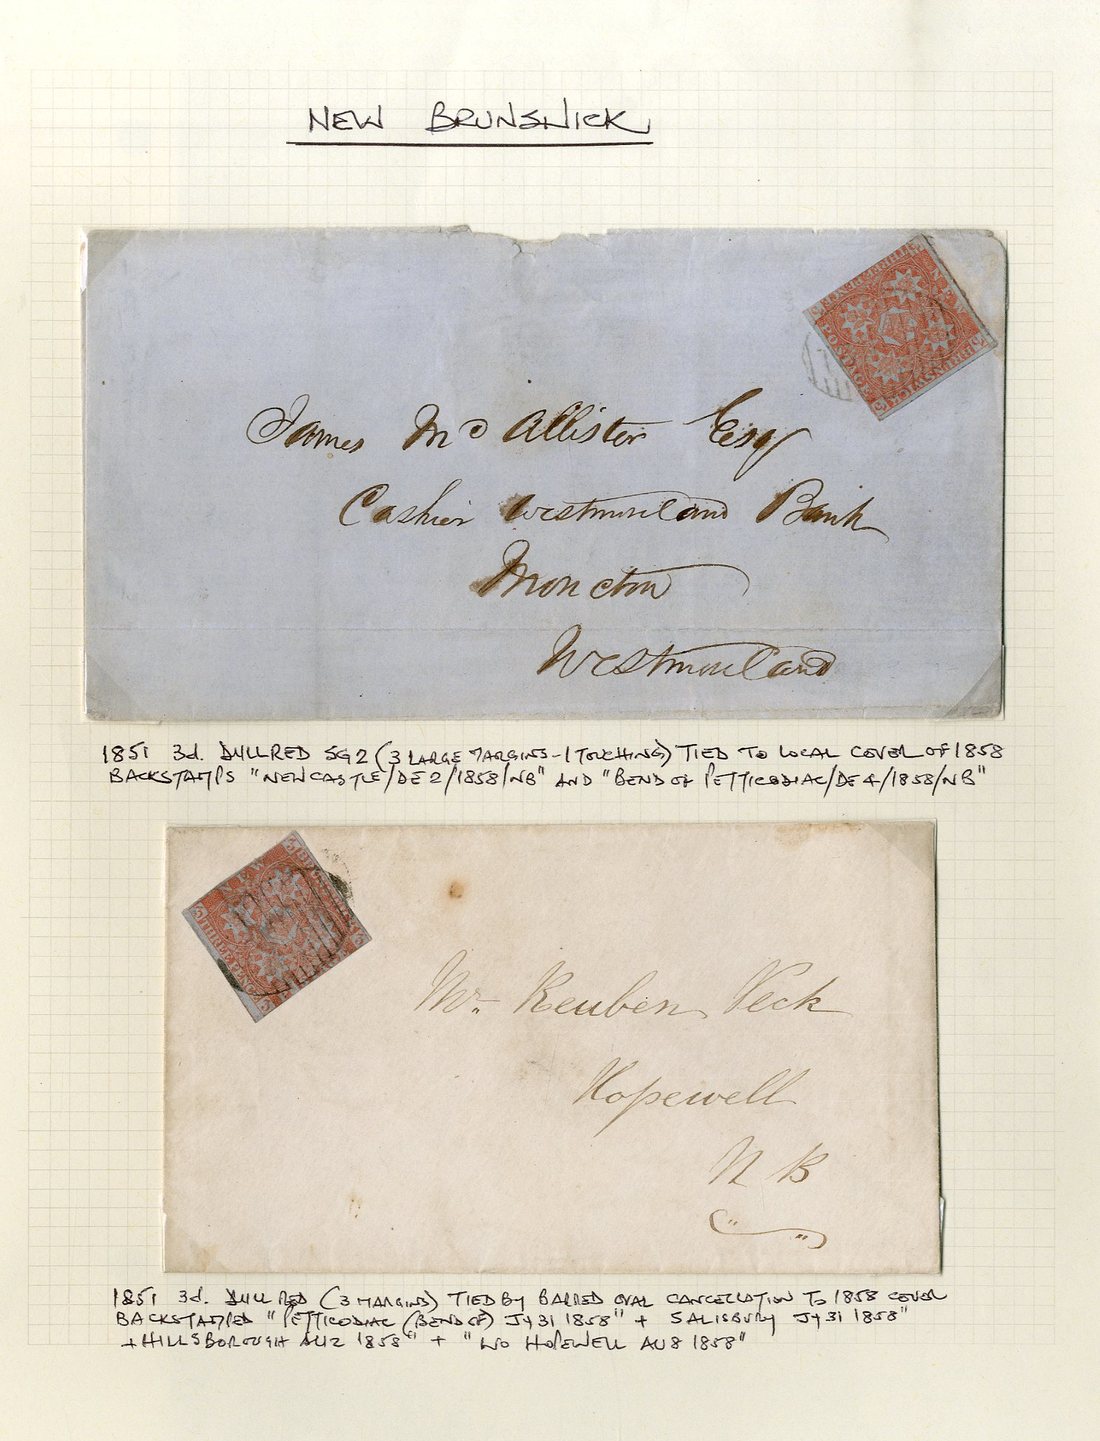 NEW BRUNSWICK
THREE PENCE
NEW
BRUNSWICK
POSTAGE
James McAllister Esq
Cashier Westmorland Bank
Moncton
Westmorland
1851 3d. DULL RED SG2 (3 LARGE MARGINS - 1 TOUCHING) TIED TO LOCAL COVER OF 1858
BACKSTAMPS "NEWCASTLE/DE 2/1858/NB" AND "BEND OF PETTICODIAC/DE 4/1858/NB"
NEW
THREE PENCE
Mr. Reuben Peck
Hopewell
N B
1851 3d. DULL RED (3 MARGINS) TIED BY BARRED OVAL CANCELLATION TO 1858 COVER
BACKSTAMPED "PETTICODIAC (BEND OF) JY31 1858" + SALISBURY JY31 1858"
+ HILLSBOROUGH AU2 1858" + "WO HOPEWELL AU8 1858"